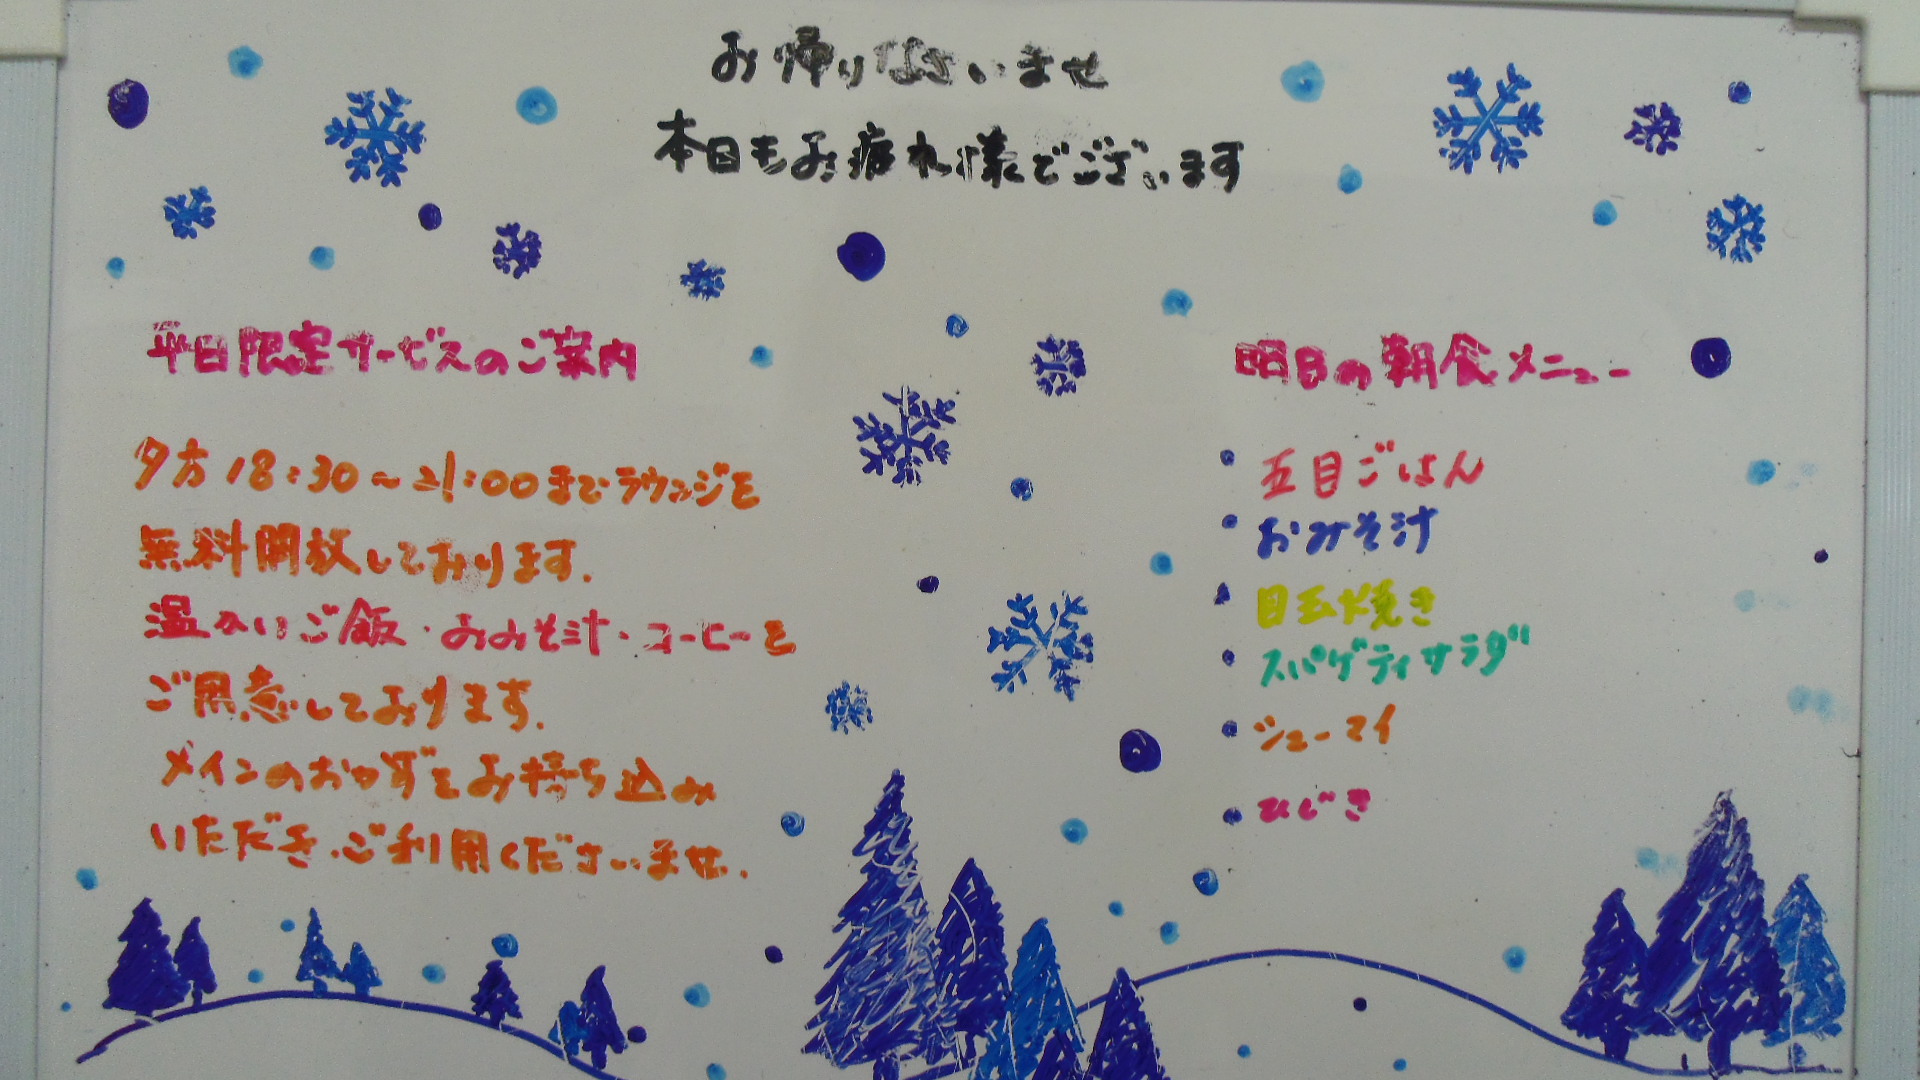 お帰りなさいませ
本日もお疲れ様でございます
平日限定サービスのご案内
夕方18:30〜21:00までラウンジを
無料開放しております.
温かいご飯・おみそ汁・コーヒーを
ご用意しております.
メインのおかずをお持ち込み
いただき、ご利用くださいませ.
明日の朝食メニュー
・五目ごはん
・おみそ汁
・目玉焼き
・スパゲティサラダ
・シューマイ
・ひじき